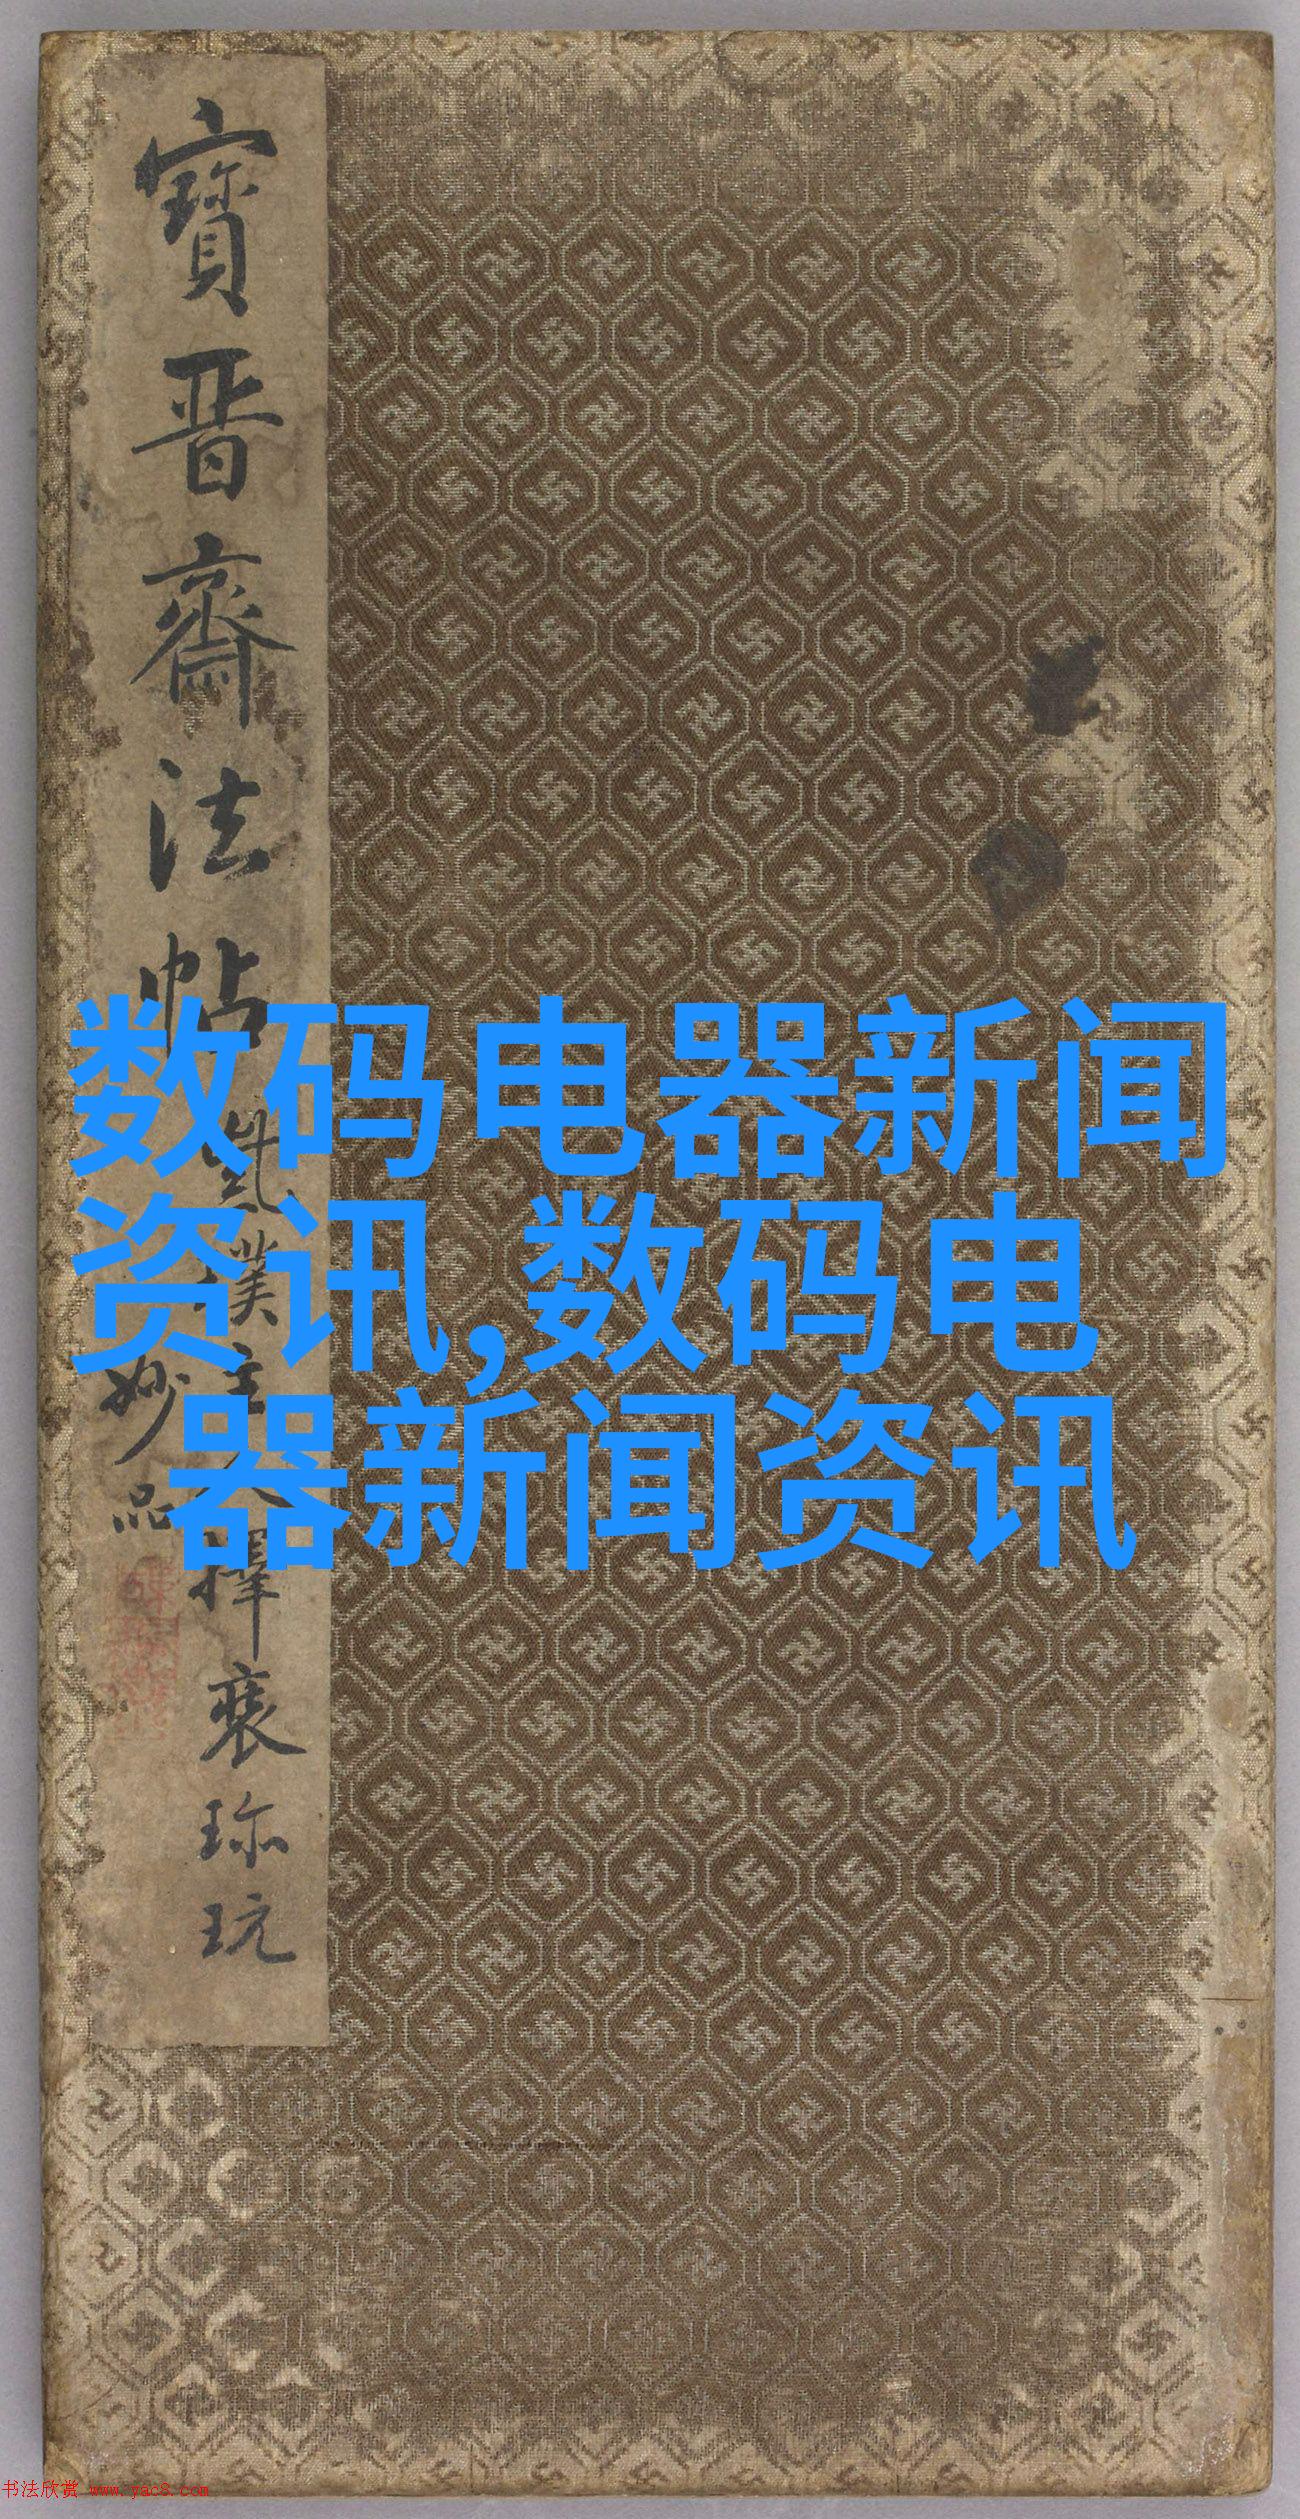 寶晋齋法帖
主
擇裘珎玩
妙品
数码电器新闻
资讯,数码电
器新闻资讯
书法欣赏 www.yac8.com